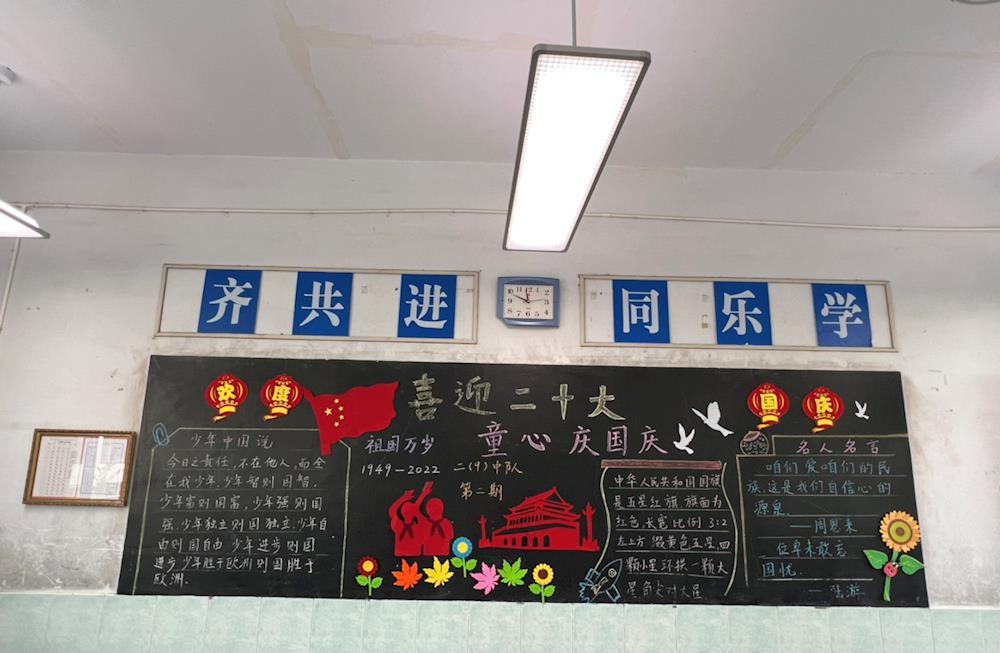 齐共进
同乐学
欢度
国庆
喜迎二十大
童心庆国庆
祖国万岁
1949-2022
二(9)中队
第二期
少年中国说
今日之责任,不在他人,而全
在我少年.少年智则国智,
少年富则国富,少年强则国
强.少年独立则国独立,少年自
由则国自由.少年进步则国
进步.少年胜于欧洲则国胜于
欧洲.
中华人民共和国国旗
是五星红旗.旗面为
红色,长宽比例3:2
左上方缀黄色五星,四
颗小星环拱一颗大
星角尖对大星.
名人名言
咱们爱咱们的民
族,这是我们自信心的
源泉.
——周恩来
位卑未敢忘
国忧.
——陆游